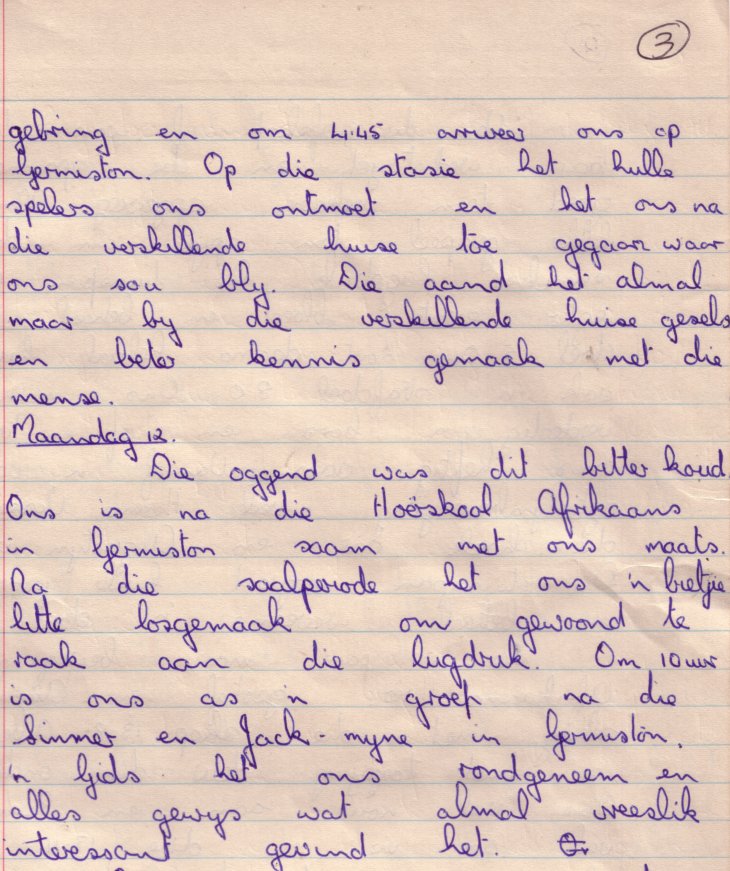 3
gebring en om 4.45 arriveer ons op
Germiston. Op die stasie het hulle
spelers ons ontmoet en het ons na
die verskillende huise toe gegaan waar
ons sou bly. Die aand het almal
maar by die verskillende huise gesels
en beter kennis gemaak met die
mense.
Maandag 12.
Die oggend was dit bitter koud.
Ons is na die Hoërskool Afrikaans
in Germiston saam met ons maats.
Na die saalperiode het ons 'n bietjie
litte losgemaak om gewoond te
raak aan die lugdruk. Om 10 uur
is ons as 'n groep na die
Simmer en Jack-myne in Germiston.
'n Gids het ons rondgeneem en
alles gewys wat almal vreeslik
interessant gevind het.